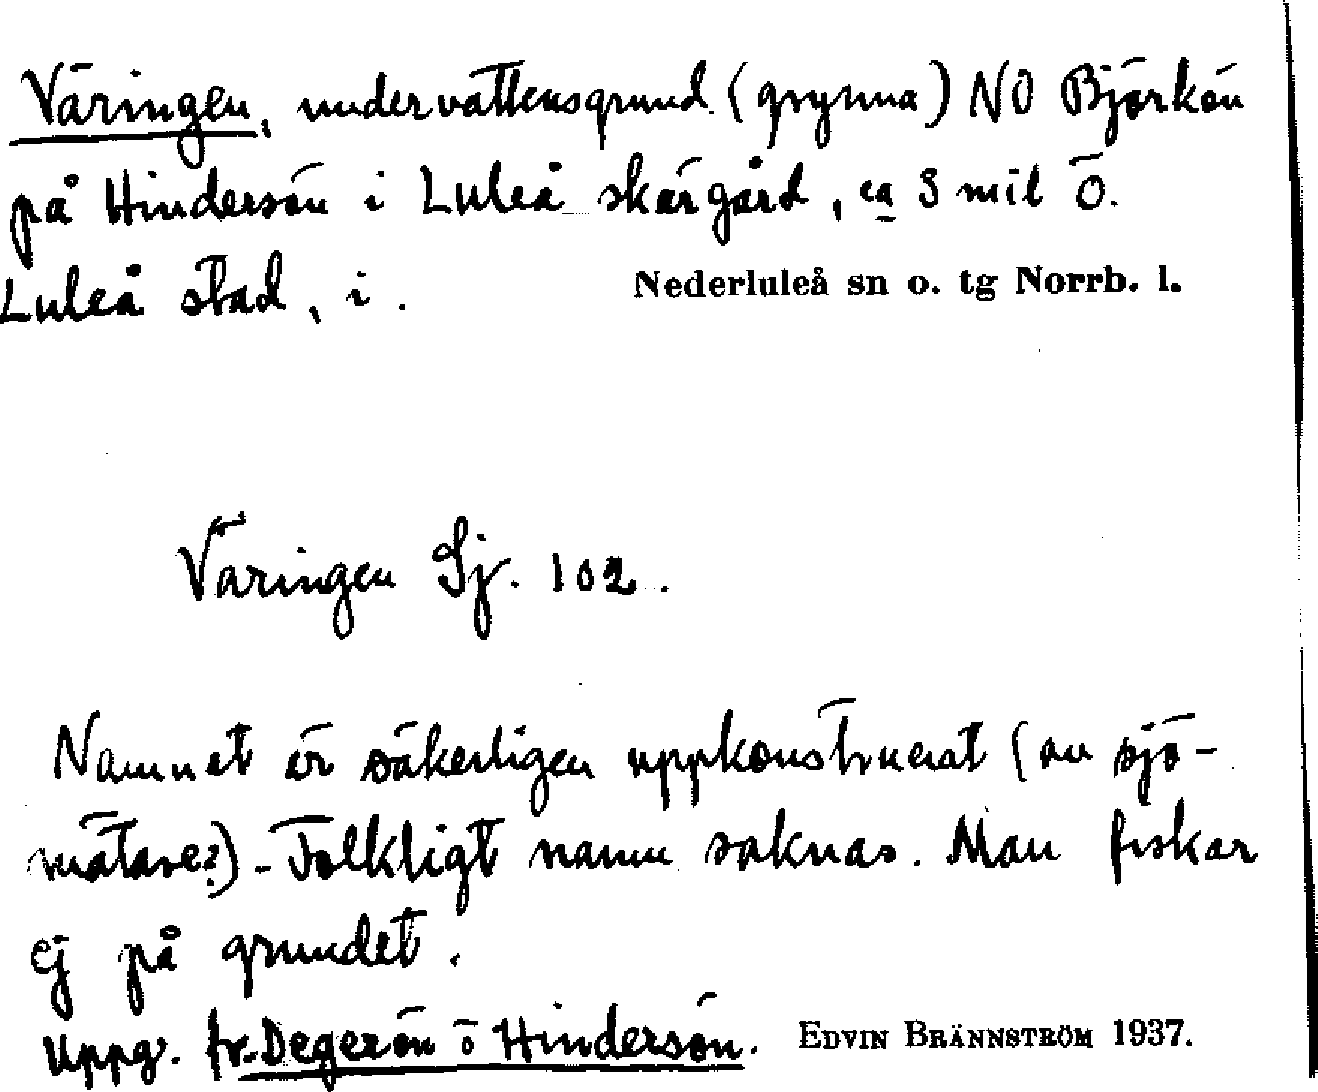 Väringen, undervattensgrund (grynna) NO Björkön
på Hindersön i Luleå skärgård, ca 3 mil ö.
Luleå stad, i. Nederluleå sn o. tg Norrb. l.
Väringen Sj. 102.
Namnet är säkerligen uppkonstruerat (av sjö-
mätare?) - Folkligt namn saknas. Man fiskar
ej på grundet.
Uppg. fr. Degerön ö Hindersön. EDVIN BRÄNNSTRÖM 1937.